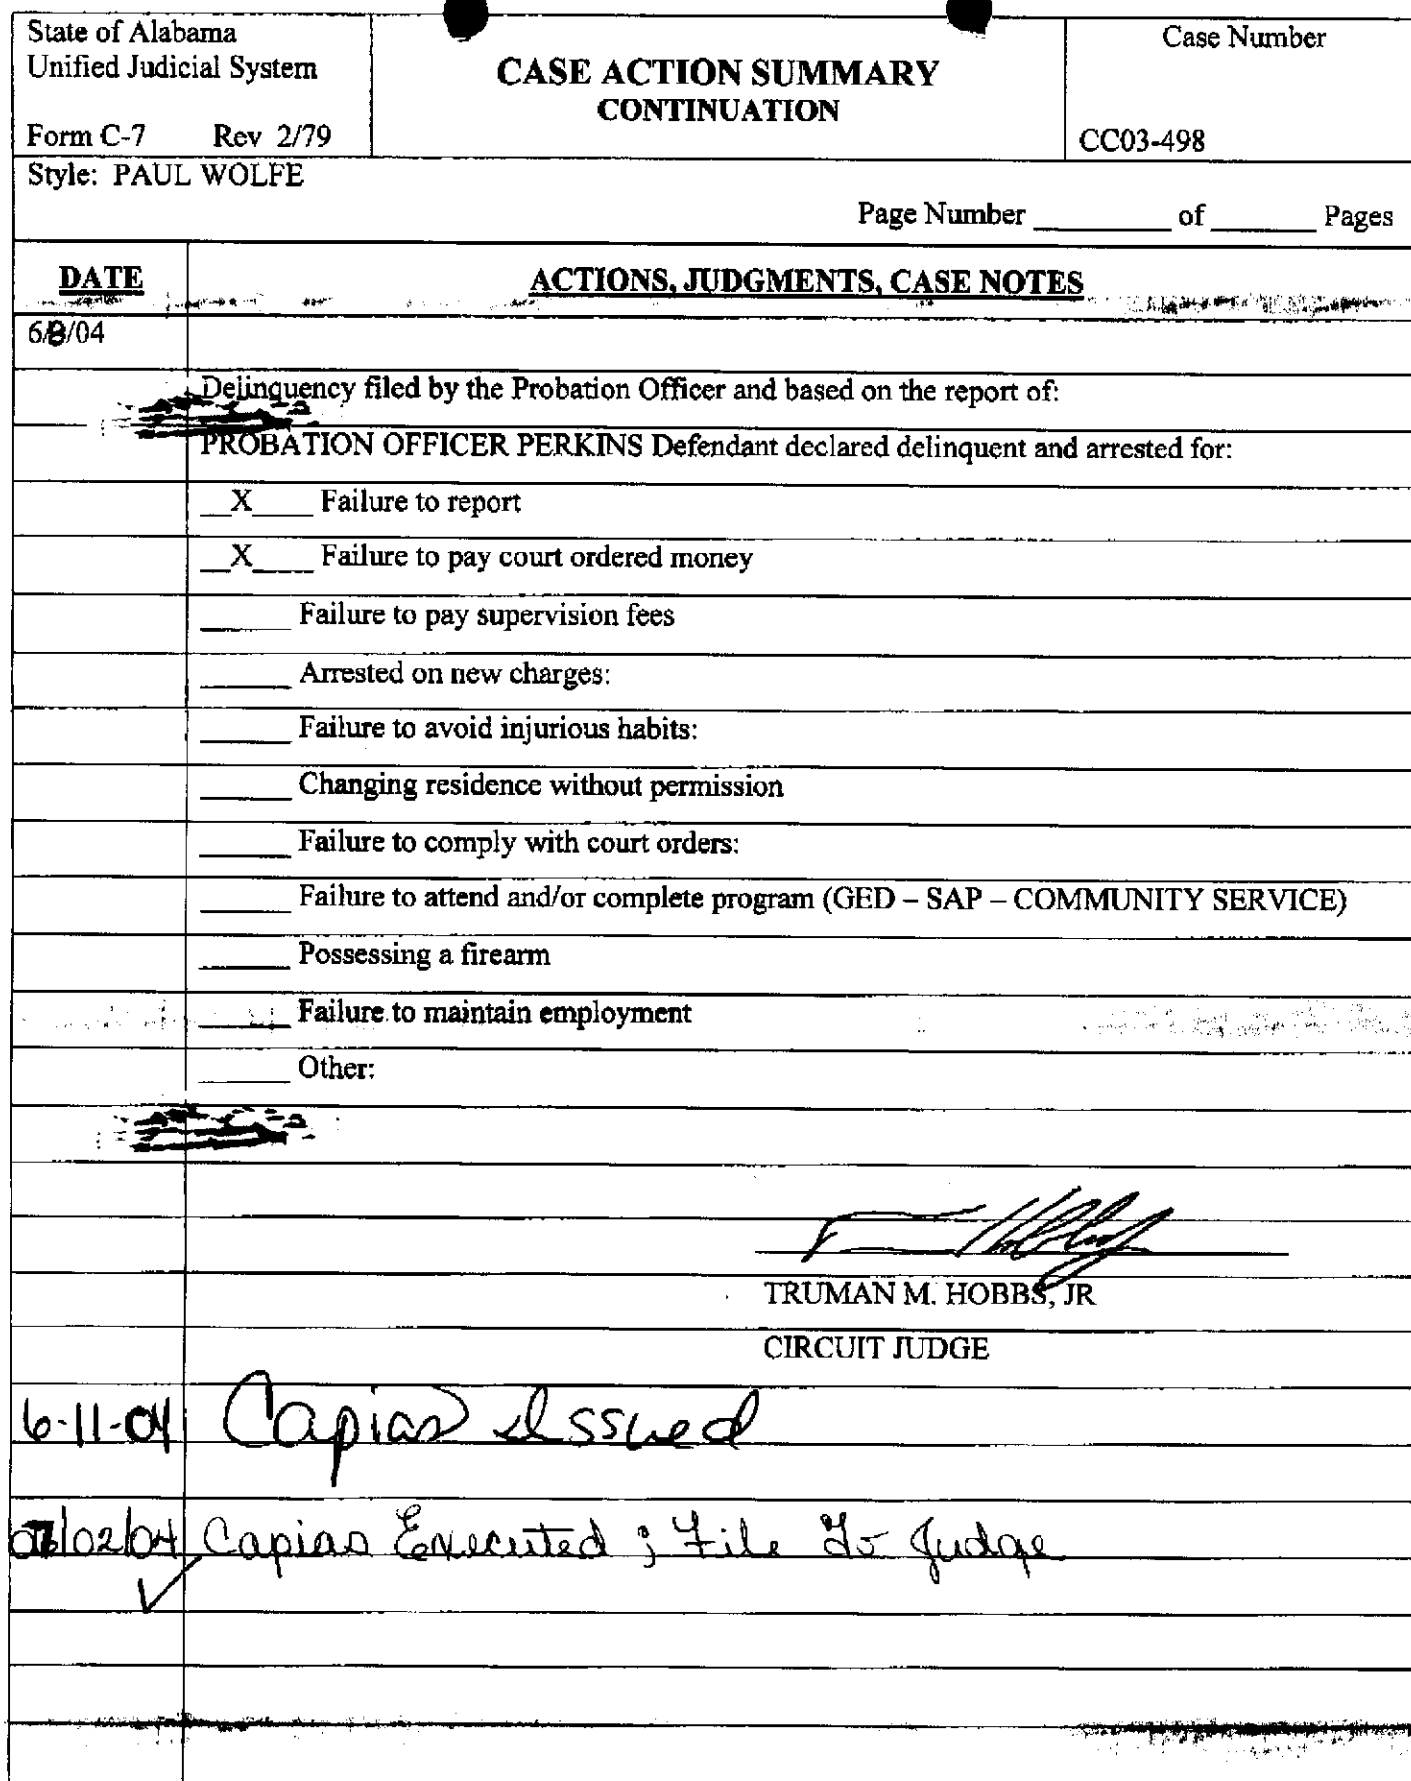 State of Alabama
Unified Judicial System
Form C-7 Rev 2/79
CASE ACTION SUMMARY
CONTINUATION
Case Number
CC03-498
Style: PAUL WOLFE
Page Number ________ of ______ Pages
DATE
ACTIONS, JUDGMENTS, CASE NOTES
6/8/04
Delinquency filed by the Probation Officer and based on the report of:
PROBATION OFFICER PERKINS Defendant declared delinquent and arrested for:
__X____ Failure to report
__X____ Failure to pay court ordered money
______ Failure to pay supervision fees
______ Arrested on new charges:
______ Failure to avoid injurious habits:
______ Changing residence without permission
______ Failure to comply with court orders:
______ Failure to attend and/or complete program (GED – SAP – COMMUNITY SERVICE)
______ Possessing a firearm
______ Failure to maintain employment
______ Other:
TRUMAN M. HOBBS, JR
CIRCUIT JUDGE
6-11-04 Capias Issued
/02/04 Capias Executed ; File To Judge